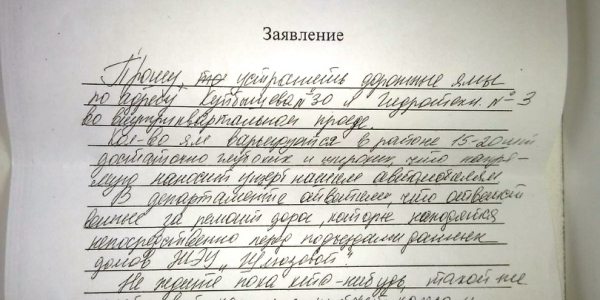 Заявление
Прошу, устранить дорожные ямы
по адресу Куйбышева №30 и Гидротехн. №3
во внутриквартальном проезде.
Кол-во ям варьируется в районе 15-20 штук
достаточно глубоких и широких, что напря-
мую наносит ущерб нашим автомобилям.
В департаменте ответили, что ответст
венные за ремонт дорог, которые находятся
непосредственно перед подъездами данных
домов ЖЭУ "Шлюзовой".
Не ждите пока кто-нибудь, такой же